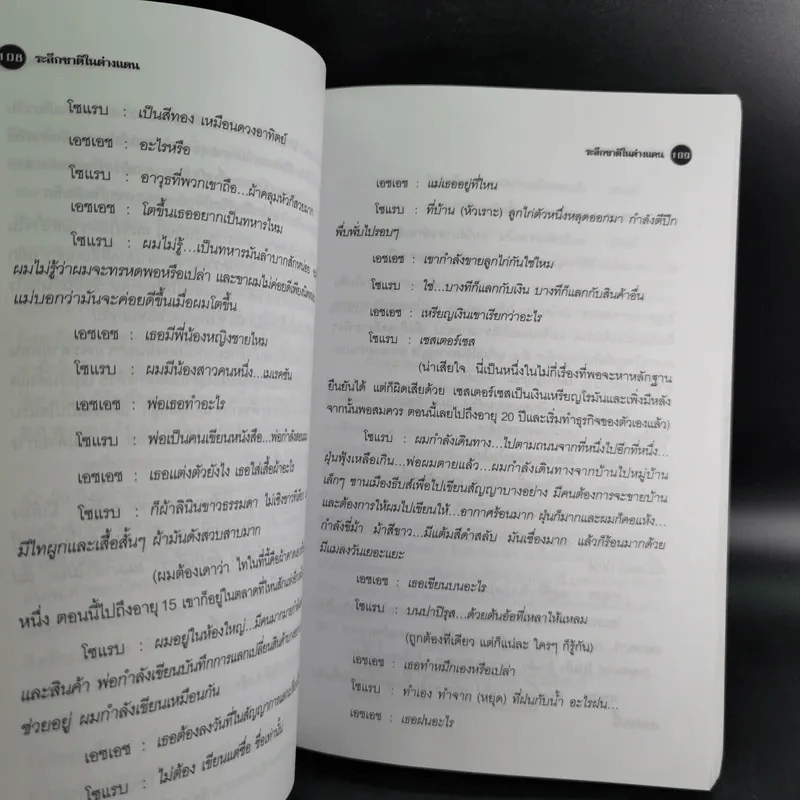 108 ระลึกชาติในต่างแดน
โซแรบ : เป็นสีทอง เหมือนดวงอาทิตย์
เอชเอช : อะไรหรือ
โซแรบ : อาวุธที่พวกเขาถือ...ผ้าคลุมหัวก็สวยมาก
เอชเอช : โตขึ้นเธออยากเป็นทหารไหม
โซแรบ : ผมไม่รู้...เป็นทหารมันลำบากสักหน่อย
ผมไม่รู้ว่าผมจะทรหดพอหรือเปล่า และขาผมไม่ค่อยดี
แม่บอกว่ามันจะค่อยดีขึ้นเมื่อผมโตขึ้น
เอชเอช : เธอมีพี่น้องหญิงชายไหม
โซแรบ : ผมมีน้องสาวคนหนึ่ง...เมเรคชัน
เอชเอช : พ่อเธอทำอะไร
โซแรบ : พ่อเป็นคนเขียนหนังสือ...พ่อกำลังสอนผม
เอชเอช : เธอแต่งตัวยังไง เธอใส่เสื้อผ้าอะไร
โซแรบ : ก็ผ้าลินินขาวธรรมดา ไม่เชิงขาว
มีไทผูกและเสื้อสั้นๆ ผ้ามันดังสวบสาบมาก
(ผมต้องเดาว่า ไทในที่นี้คือผ้าคาด
หนึ่ง ตอนนี้ไปถึงอายุ 15 เขาก็อยู่ในตลาดที่ไหนสักแห่ง
โซแรบ : ผมอยู่ในห้องใหญ่...มีคนมากมาย
และสินค้า พ่อกำลังเขียนบันทึกการแลกเปลี่ยนสินค้า
ช่วยอยู่ ผมกำลังเขียนเหมือนกัน
เอชเอช : เธอต้องลงวันที่ในสัญญา
โซแรบ : ไม่ต้อง เขียนแต่ชื่อ ชื่อเท่านั้น
ระลึกชาติในต่างแดน 109
เอชเอช : แม่เธออยู่ที่ไหน
โซแรบ : ที่บ้าน (หัวเราะ) ลูกไก่ตัวหนึ่งหลุดออกมา กำลังตีปีก
พึ่บพั่บไปรอบๆ
เอชเอช : เขากำลังขายลูกไก่กันใช่ไหม
โซแรบ : ใช่...บางทีก็แลกกับเงิน บางทีก็แลกกับสินค้าอื่น
เอชเอช : เหรียญเงินเขาเรียกว่าอะไร
โซแรบ : เซสเตอร์เซส
(น่าเสียใจ นี่เป็นหนึ่งในไม่กี่เรื่องที่พอจะหาหลักฐาน
ยืนยันได้ แต่ก็ผิดเสียด้วย เซสเตอร์เซสเป็นเงินเหรียญโรมันและเพิ่งมีหลัง
จากนั้นพอสมควร ตอนนี้เลยไปถึงอายุ 20 ปีและเริ่มทำธุรกิจของตัวเองแล้ว)
โซแรบ : ผมกำลังเดินทาง...ไปตามถนนจากที่หนึ่งไปอีกที่หนึ่ง...
ฝุ่นฟุ้งเหลือเกิน...พ่อผมตายแล้ว...ผมกำลังเดินทางจากบ้านไปหมู่บ้าน
เล็กๆ ชานเมืองธีบส์เพื่อไปเขียนสัญญาบางอย่าง มีคนต้องการจะขายบ้าน
และต้องการให้ผมไปเขียนให้...อากาศร้อนมาก ฝุ่นก็มากและผมก็คอแห้ง...
กำลังขี่ม้า ม้าสีขาว...มีแต้มสีดำสลับ มันเชื่องมาก แล้วก็ร้อนมากด้วย
มีแมลงวันเยอะแยะ
เอชเอช : เธอเขียนบนอะไร
โซแรบ : บนปาปิรุส...ด้วยต้นอ้อที่เหลาให้แหลม
(ถูกต้องทีเดียว แต่ก็แน่ละ ใครๆ ก็รู้กัน)
เอชเอช : เธอทำหมึกเองหรือเปล่า
โซแรบ : ทำเอง ทำจาก (หยุด) ที่ฝนกับน้ำ อะไรฝน...
เอชเอช : เธอฝนอะไร